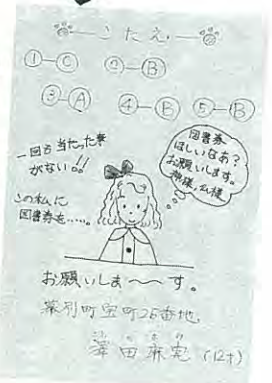 こたえ
①-Ⓒ ②-Ⓑ
③-Ⓐ ④-Ⓑ ⑤-Ⓑ
一回も当たった事
がない!!
この私に
図書券を……。
図書券
ほしいなあ?
お願いします。
神様、仏様
お願いしま〜〜す。
幕別町宝町26番地
(12才)